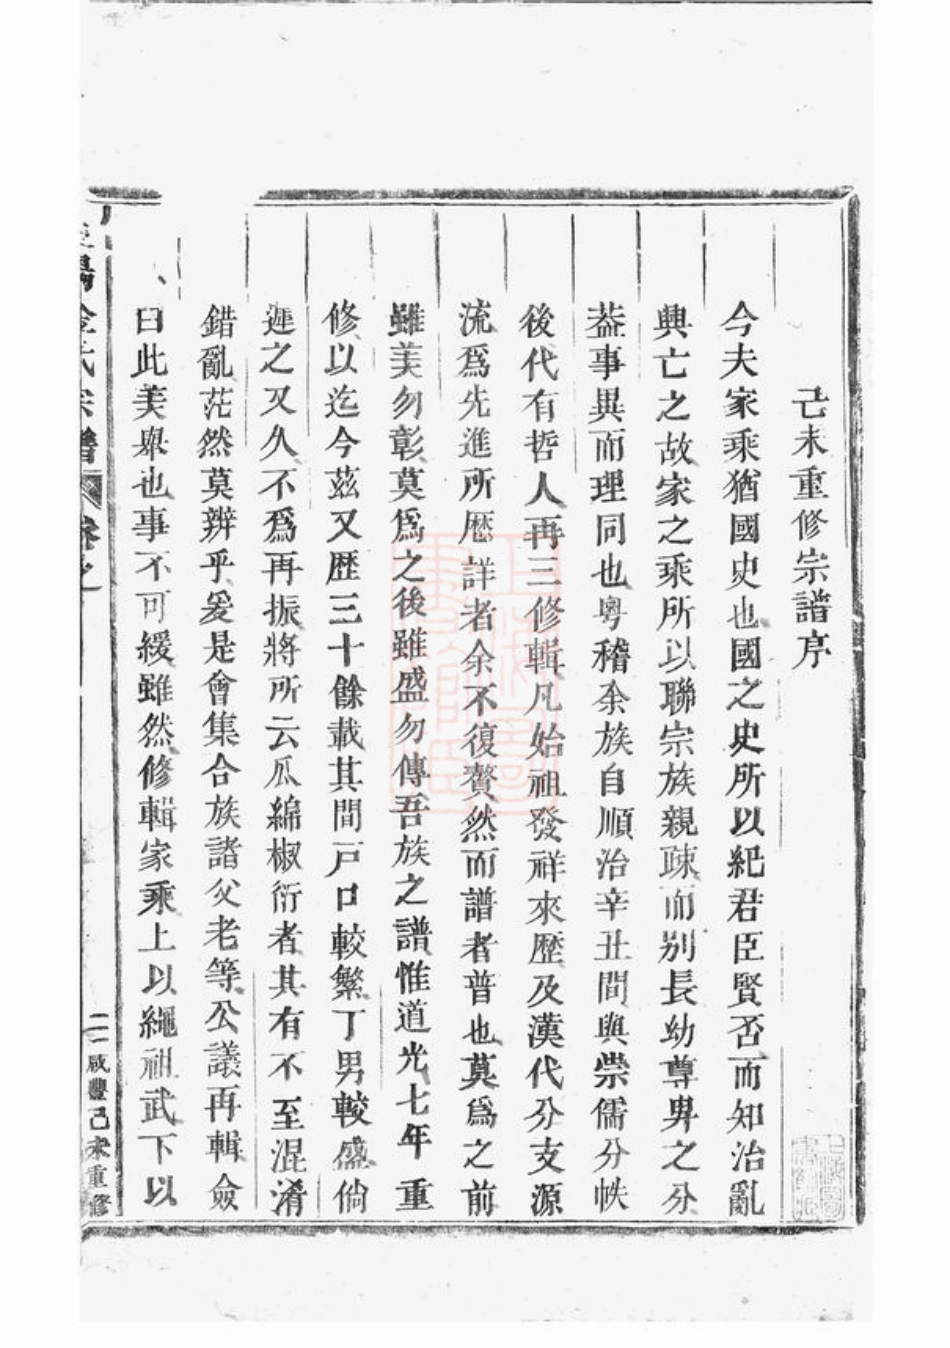 己未重修宗譜序
今夫家乘猶國史也國之史所以紀君臣賢否而知治亂
興亡之故家之乘所以聯宗族親疎而别長幼尊卑之分
葢事異而理同也粤稽余族自順治辛丑間與崇儒分帙
後代有哲人再三修輯凡始祖發祥來歴及漢代分支源
流爲先進所歴詳者余不復贅然而譜者普也莫爲之前
雖美勿彰莫爲之後雖盛勿傳吾族之譜惟道光七年重
修以迄今茲又歴三十餘載其間戸口較繁丁男較盛倘
遲之又久不爲再振將所云瓜綿椒衍者其有不至混淆
錯亂茫然莫辨乎爰是會集合族諸父老等公議再輯僉
曰此美舉也事不可緩雖然修輯家乘上以繩祖武下以
陽金氏宗譜
卷之
二
咸豐己未重修